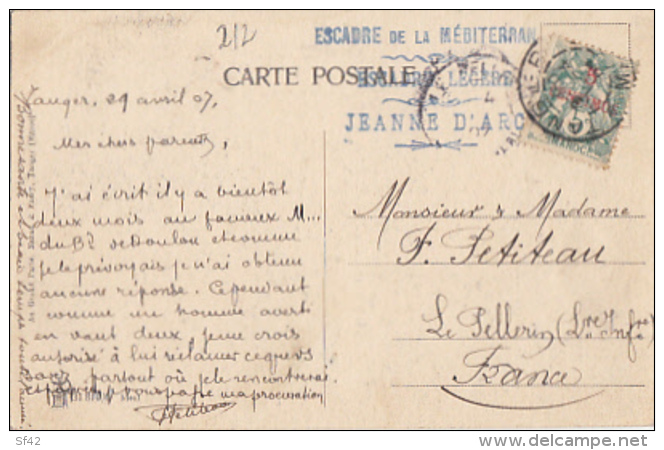 2/2
ESCADRE DE LA MÉDITERRAN
CARTE POSTALE
ESCADRE LÉGÈRE
JEANNE D'ARC
MAROC
Tanger, 29 avril 07,
Mes chers parents,
J'ai écrit il y a bientôt
deux mois au fameux M...
du Bd de Toulon et comme
je le prévoyais je n'ai obtenu
aucune réponse. Cependant
comme un homme averti
en vaut deux, je me crois
autorisé à lui réclamer ce que vs
savez partout où je le rencontrerai
ma procuration
Petiteau
Bonne santé et beau temps
Monsieur & Madame
F. Petiteau
Le Pellerin (Lre Infre)
France
Sf42
delcampe.net